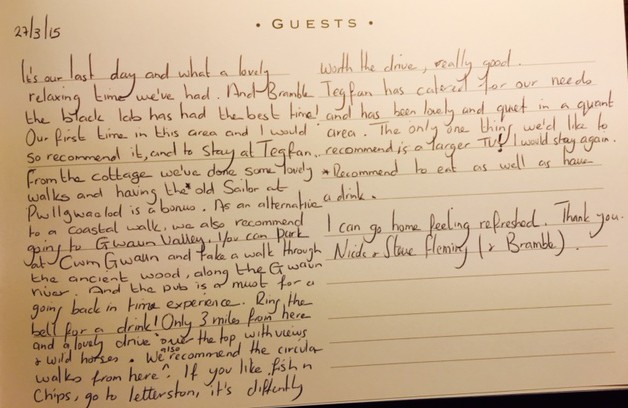 27/3/15
• GUESTS •
It's our last day and what a lovely
relaxing time we've had. And Bramble
the black lab has had the best time!
Our first time in this area and I would
so recommend it, and to stay at Tegfan.
From the cottage we've done some lovely
walks and having the* old Sailor at
Pwllgwaelod is a bonus. As an alternative
to a coastal walk, we also recommend
going to Gwaun Valley. You can park
at Cwm Gwaun and take a walk through
the ancient wood, along the Gwaun
river. And the pub is a must for a
going back in time experience. Ring the
bell for a drink! Only 3 miles from here
and a lovely drive over the top with views
& wild horses. We also recommend the circular
walks from here. If you like fish n
chips, go to letterston, it's diffently
worth the drive, really good.
Tegfan has catered for our needs
and has been lovely and quiet in a quant
area. The only one thing we'd like to
recommend is a larger TV! I would stay again.
*Recommend to eat as well as have
a drink.
I can go home feeling refreshed. Thank you.
Nicda & Steve Fleming (& Bramble).